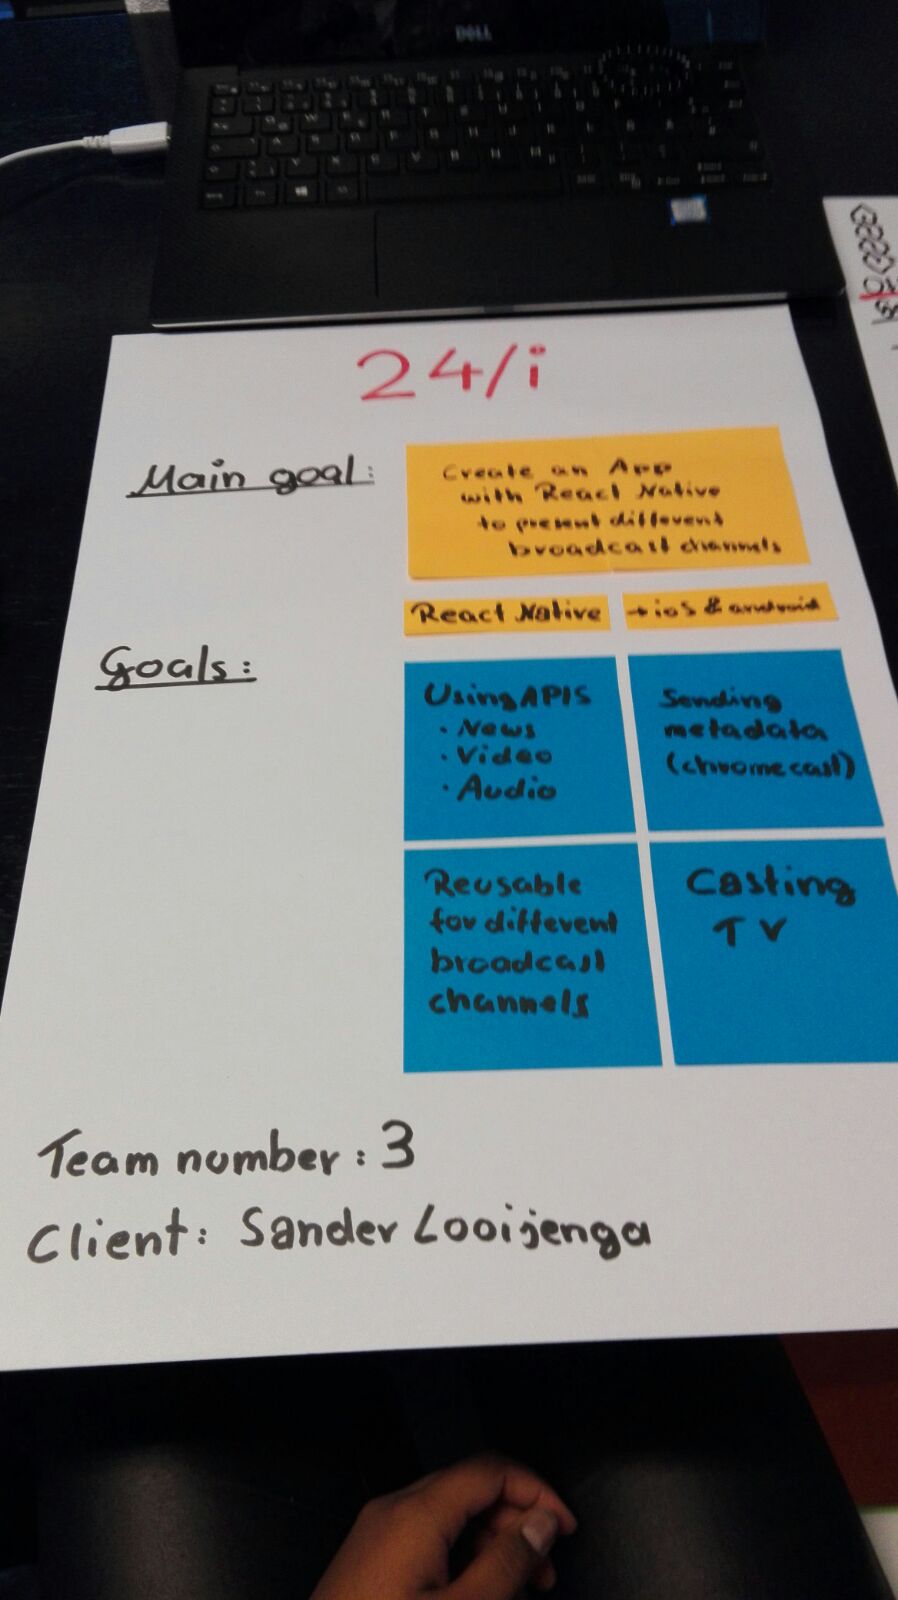 DELL
24/i
Main goal:
Create an App
with React Native
to present different
broadcast channels
React Native
→ ios & android
Goals:
Using APIS
· News
· Video
· Audio
Sending
metadata
(chromecast)
Reusable
for different
broadcast
channels
Casting
TV
Team number: 3
Client: Sander Looijenga